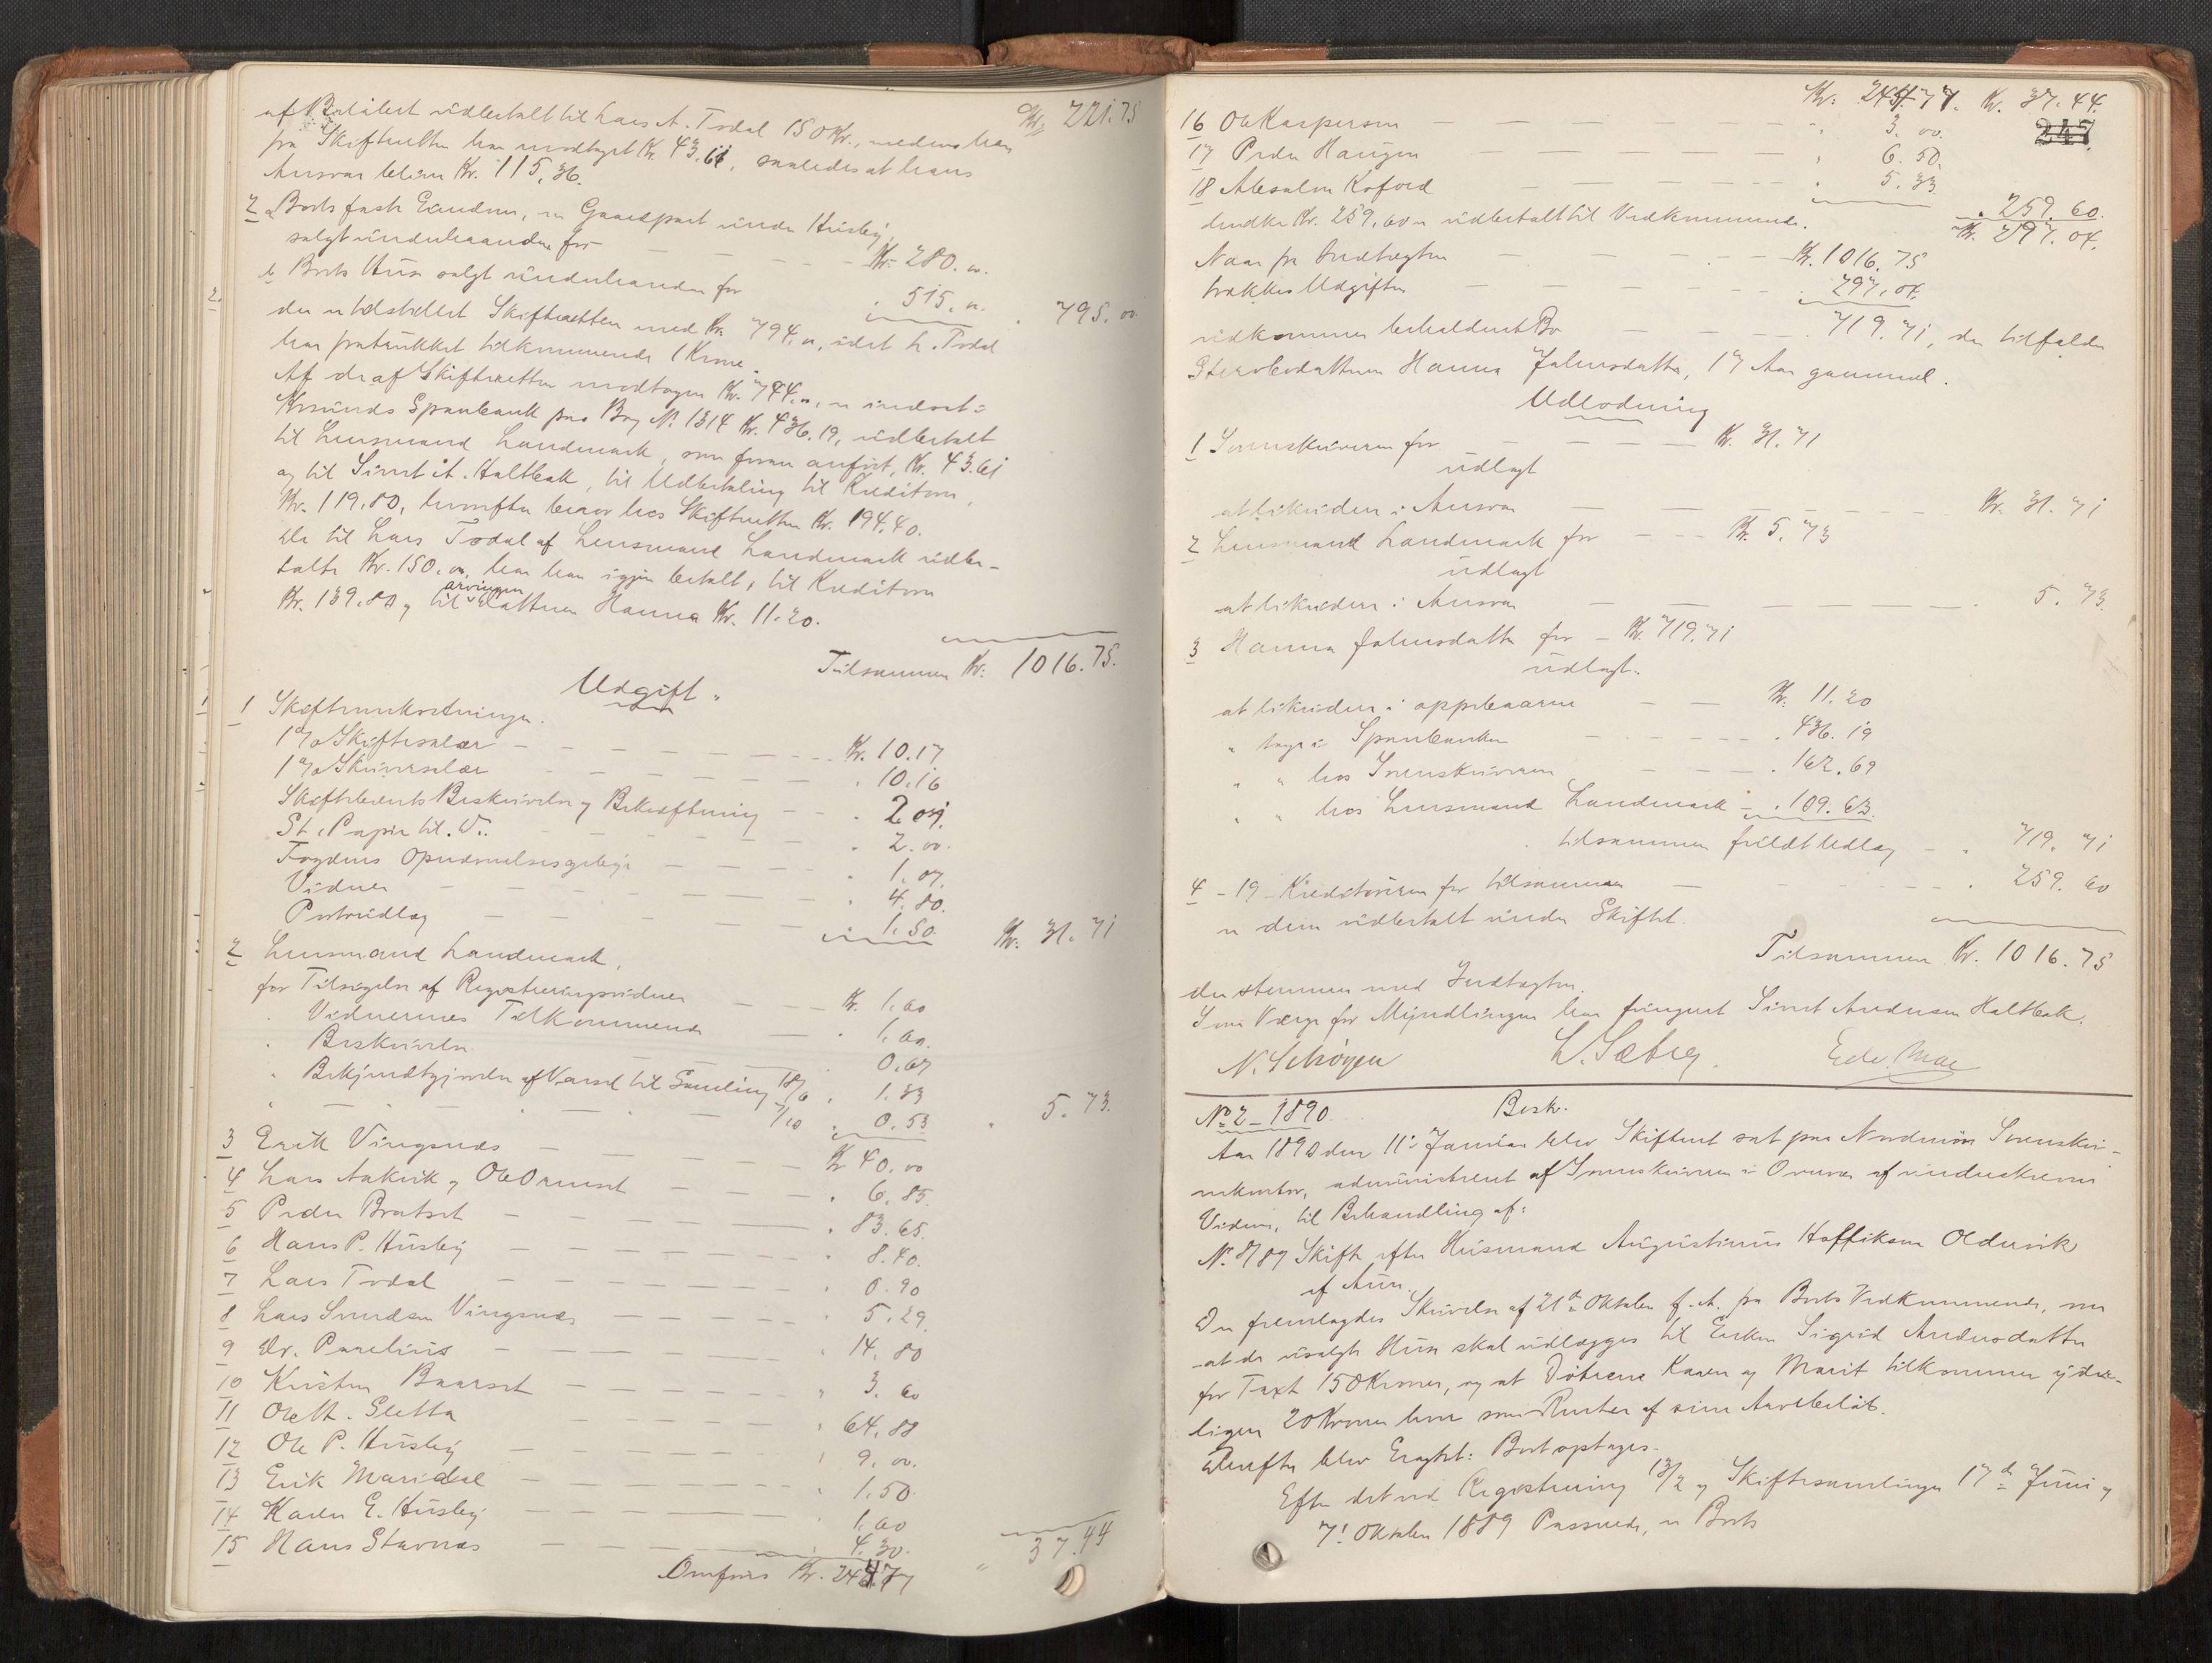 af Beløbet udbetalt til Lars A. Todal 150 Kr., medens han Kr. 221.75
fra Skifteretten har modtaget Kr. 43.61, saaledes at hans
Ansvar bliver Kr. 115.36.
2 a Boets faste Eiendom, en Gaardpart under Husby,
solgt underhaanden for — — — Kr. 280.00
b Boets Huse solgt underhaanden for " 515.00 " 795.00
der er tilstillet Skifteretten med Kr. 794.00, idet L. Todal
har fratrukket tilkommende 1 Krone.
Af de af Skifteretten modtagne Kr. 744.00, er indsat i
Krsunds Sparebank paa Bog No 1314 Kr. 436.19, udbetalt
til Lensmand Landmark, som foran anført, Kr. 43.61
og til Sivert A. Haltbak, til Udbetaling til Kreditorer,
Kr. 119.80, hvorefter beror hos Skifteretten Kr. 194.40.
De til Lars Todal af Lensmand Landmark udbe-
talte Kr. 150.00 har han igjen betalt, til Kreditorer
Kr. 139.80 og til arvingen Datteren Hanna Kr. 11.20.
Tilsammen Kr. 1016.75.
Udgift.
1 Skifteomkostninger.
1 % Skiftesalær — — — Kr. 10.17
1 % Skriversalær — — — " 10.16
Skiftebrevets Beskrivelse og Bekræftning — — " 2.07
St. Papir til D. — — — " 2.00
Fogdens Opnævnelsesgebyr — — — " 1.07
Vidner — — — " 4.80
Portoudlæg — — — " 1.50 Kr. 31.71
2 Lensmand Landmark,
for Tilsigelse af Registreringsvidner — — Kr. 1.60
" Vidnernes Tilkommende — — " 1.60
" Beskrivelse — — " 0.67
" Bekjendtgjørelse af Varsel til Samling 18/6 " 1.33
" — " — " — 7/10 " 0.53 " 5.73
3 Erik Vingsnæs — — — Kr 40.00
4 Lars Aakvik og Ole Ormset — — — " 6.85
5 Peder Bratset — — — " 83.65
6 Hans P. Husby — — — " 8.40
7 Lars Todal — — — " 0.90
8 Lars Sundsen Vingsnæs — — — " 5.29
9 Dr. Parelius — — — " 14.80
10 Kristen Baarset — — — " 3.60
11 Ole A. Sletta — — — " 64.88
12 Ole P. Husby — — — " 9.00
13 Erik Maridal — — — " 1.50
14 Karen E. Husby — — — " 1.60
15 Hans Stavnæs — — — " 4.30
Omføres Kr. 244.77 " 37.44
Kr. 244.77. Kr. 37.44.
247
16 Ole Kaspersen — — — " 3.00
17 Peder Haugen — — — " 6.50
18 Absalon Kofoed — — — " 5.33
hvilke Kr. 259.60 er udbetalt til Vedkommende. " 259.60
Kr. 297.04
Naar fra Indtægten — — — Kr. 1016.75
trækkes Udgiften — — — " 297.04
udkommer beholdent Bo — — — " 719.71, der tilfalder
Stervbodatteren Hanna Johnsdatter, 17 Aar gammel.
Udlodning
1 Sorenskriveren for — — — Kr. 31.71
udlagt
at likvidere i Ansvar — — — Kr. 31.71
2 Lensmand Landmark for — — Kr. 5.73
udlagt
at likvidere i Ansvar — — — " 5.73
3 Hanna Johnsdatter for — Kr. 719.71
udlagt.
at likvidere i oppebaaren — — Kr. 11.20
" tage i Sparebanken — — — " 436.19
" " hos Sorenskriveren — — " 162.69
" " hos Lensmand Landmark — " 109.63
tilsammen fuldt Udlæg — " 719.71
4 - 19 - Kreditorerne for tilsammen — — " 259.60
er dem udbetalt under Skiftet.
Tilsammen Kr. 1016.75
der stemmer med Indtægten.
Som Værge for Myndlingen har fungeret Sivert Andersen Haltbak.
N. Schøyen L. Sæby. Edv. Moe
No 2 - 1890. Besk.
Aar 1890 den 11te Januar blev Skifteret sat paa Nordmøre Sorenskri-
verkontor, administreret af Sorenskriveren i Overvær af underskrevne
Vidner, til Behandling af:
No 8/89 Skifte efter Husmand Augustinus Halfiksen Oldervik
af Aure.
Der fremlagdes Skrivelse af 21de Oktober f. A. fra Boets Vedkommende, om
at de usolgte Huse skal udlægges til Enken Sigrid Andersdatter
for Taxt 150 Kroner, og at Døtrene Karen og Marit tilkommer yder-
ligere 20 Kroner hver som Renter af sine Arvebeløb.
Derefter blev Eragtet: Boet optages.
Efter det ved Registrering 13/2 og Skiftesamlinger 17de Juni og
7. Oktober 1889 Passerede, er Boets